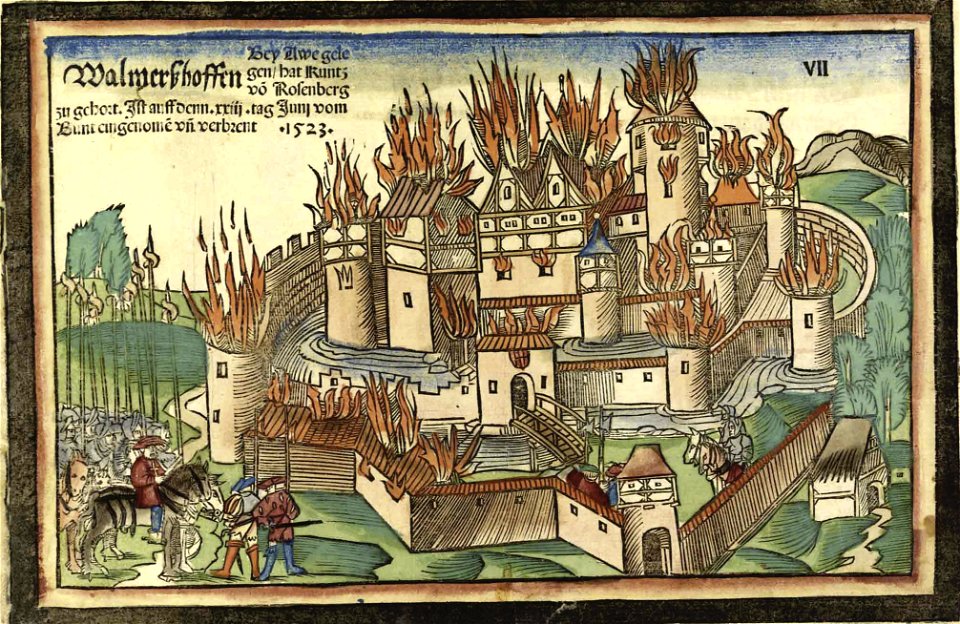 Walmerßhoffen
Bey Awe gele
gen/ hat Kuntz
vō Rosenberg
zu gehort. Ist auff denn .xxiij .tag Junij vom
Bunt eingenomē vñ verbrent ·1523·
VII